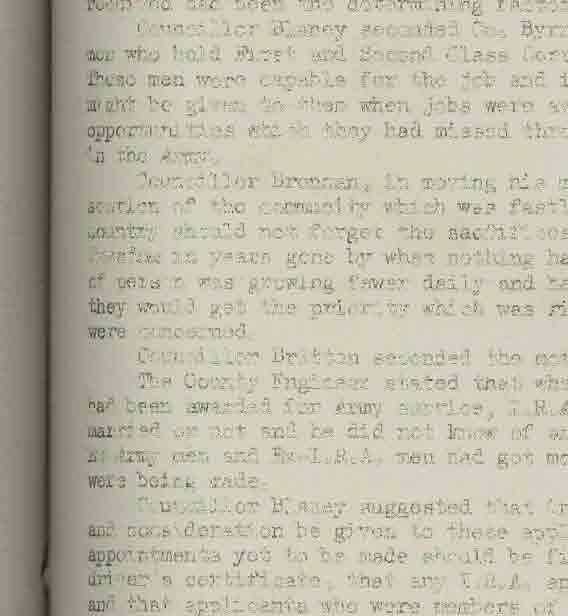 had been the determining
Councillor Blaney seconded Co. Byrn
men who hold First and Second Class
These men were capable for the job and i
might be given to them when jobs were av
opportunities which they had missed thro
in the Army.
Councillor Brennan, in moving his
section of the community which was fast
country should not forget the sacrifices
in years gone by when nothing ha
of person was growing fewer daily and he
they would get the priority which was ri
were concerned.
Councillor Britton seconded the mo
The County Engineer stated that
had been awarded for Army service, I.R.A
married or not and he did not know of
Ex-Army men and Ex-I.R.A. men had got mo
were being made.
Councillor Blaney suggested that
and consideration be given to these app
appointments yet to be made should be fi
driver's certificate, that any I.R.A. an
and that applicants who were members of